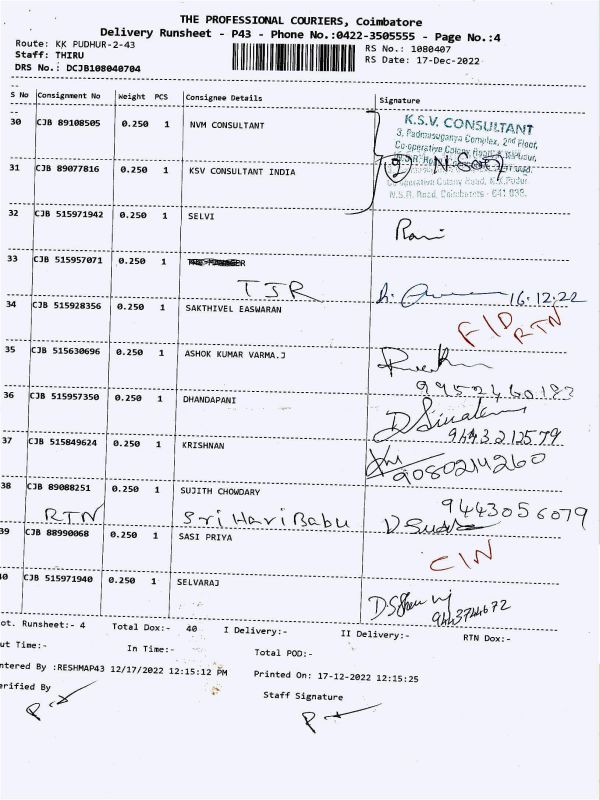 THE PROFESSIONAL COURIERS, Coimbatore
Delivery Runsheet - P43 - Phone No.:0422-3505555 - Page No.:4
Route: KK PUDHUR-2-43
RS No.: 1080407
Staff: THIRU
RS Date: 17-Dec-2022
DRS No.: DCJB108040704
S No Consignment No Weight PCS Consignee Details Signature
30 CJB 89108505 0.250 1 NVM CONSULTANT
K.S.V. CONSULTANT
3, Padmasuganya Complex, 2nd Floor,
Co-operative Colony
31 CJB 89077816 0.250 1 KSV CONSULTANT INDIA
2
N.S.R. Road, Coimbatore - 641 038.
32 CJB 515971942 0.250 1 SELVI
Rani
33 CJB 515957071 0.250 1
TJR
16.12.22
34 CJB 515928356 0.250 1 SAKTHIVEL EASWARAN
F/D
RTN
35 CJB 515630696 0.250 1 ASHOK KUMAR VARMA.J
36 CJB 515957350 0.250 1 DHANDAPANI
37 CJB 515849624 0.250 1 KRISHNAN
9080214260
38 CJB 89088251 0.250 1 SUJITH CHOWDARY
RTN Sri Hari Babu
9443056079
39 CJB 88990068 0.250 1 SASI PRIYA
C/N
40 CJB 515971940 0.250 1 SELVARAJ
9443744672
ot. Runsheet:- 4 Total Dox:- 40 I Delivery:- II Delivery:- RTN Dox:-
ut Time:- In Time:- Total POD:-
ntered By :RESHMAP43 12/17/2022 12:15:12 PM Printed On: 17-12-2022 12:15:25
erified By Staff Signature